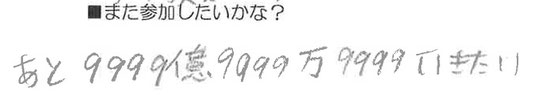 ■また参加したいかな？
あと9999億9999万9999いきたい